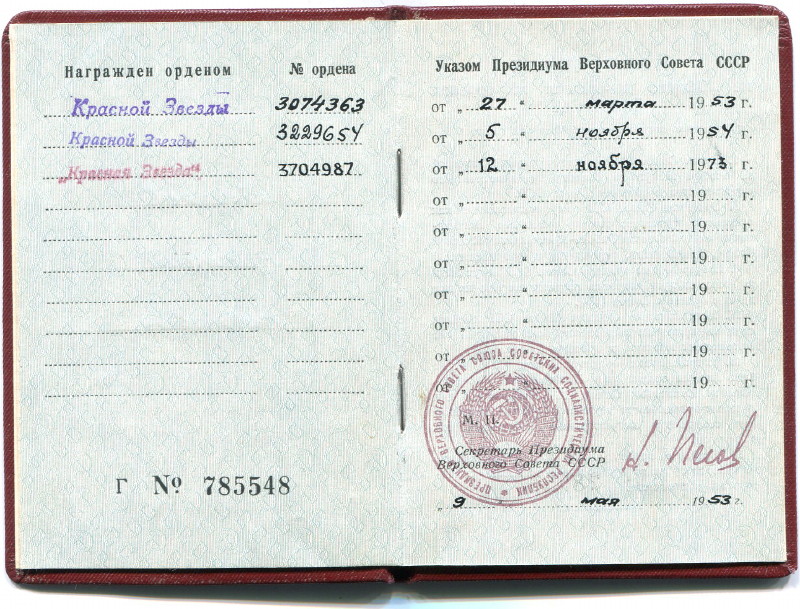 Награжден орденом № ордена
Красной Звезды 3074363
Красной Звезды 3229654
„Красная Звезда“ 3704987
Г № 785548
Указом Президиума Верховного Совета СССР
от „ 27 “ марта 1953 г.
от „ 5 “ ноября 1954 г.
от „ 12 “ ноября 1973 г.
от „ “ 19 г.
от „ “ 19 г.
от „ “ 19 г.
от „ “ 19 г.
от „ “ 19 г.
от „ “ 19 г.
от „ “ 19 г.
ПРЕЗИДИУМ ВЕРХОВНОГО СОВЕТА СОЮЗА СОВЕТСКИХ СОЦИАЛИСТИЧЕСКИХ РЕСПУБЛИК
М. П.
Секретарь Президиума
Верховного Совета СССР
„ 9 “ мая 1953 г.